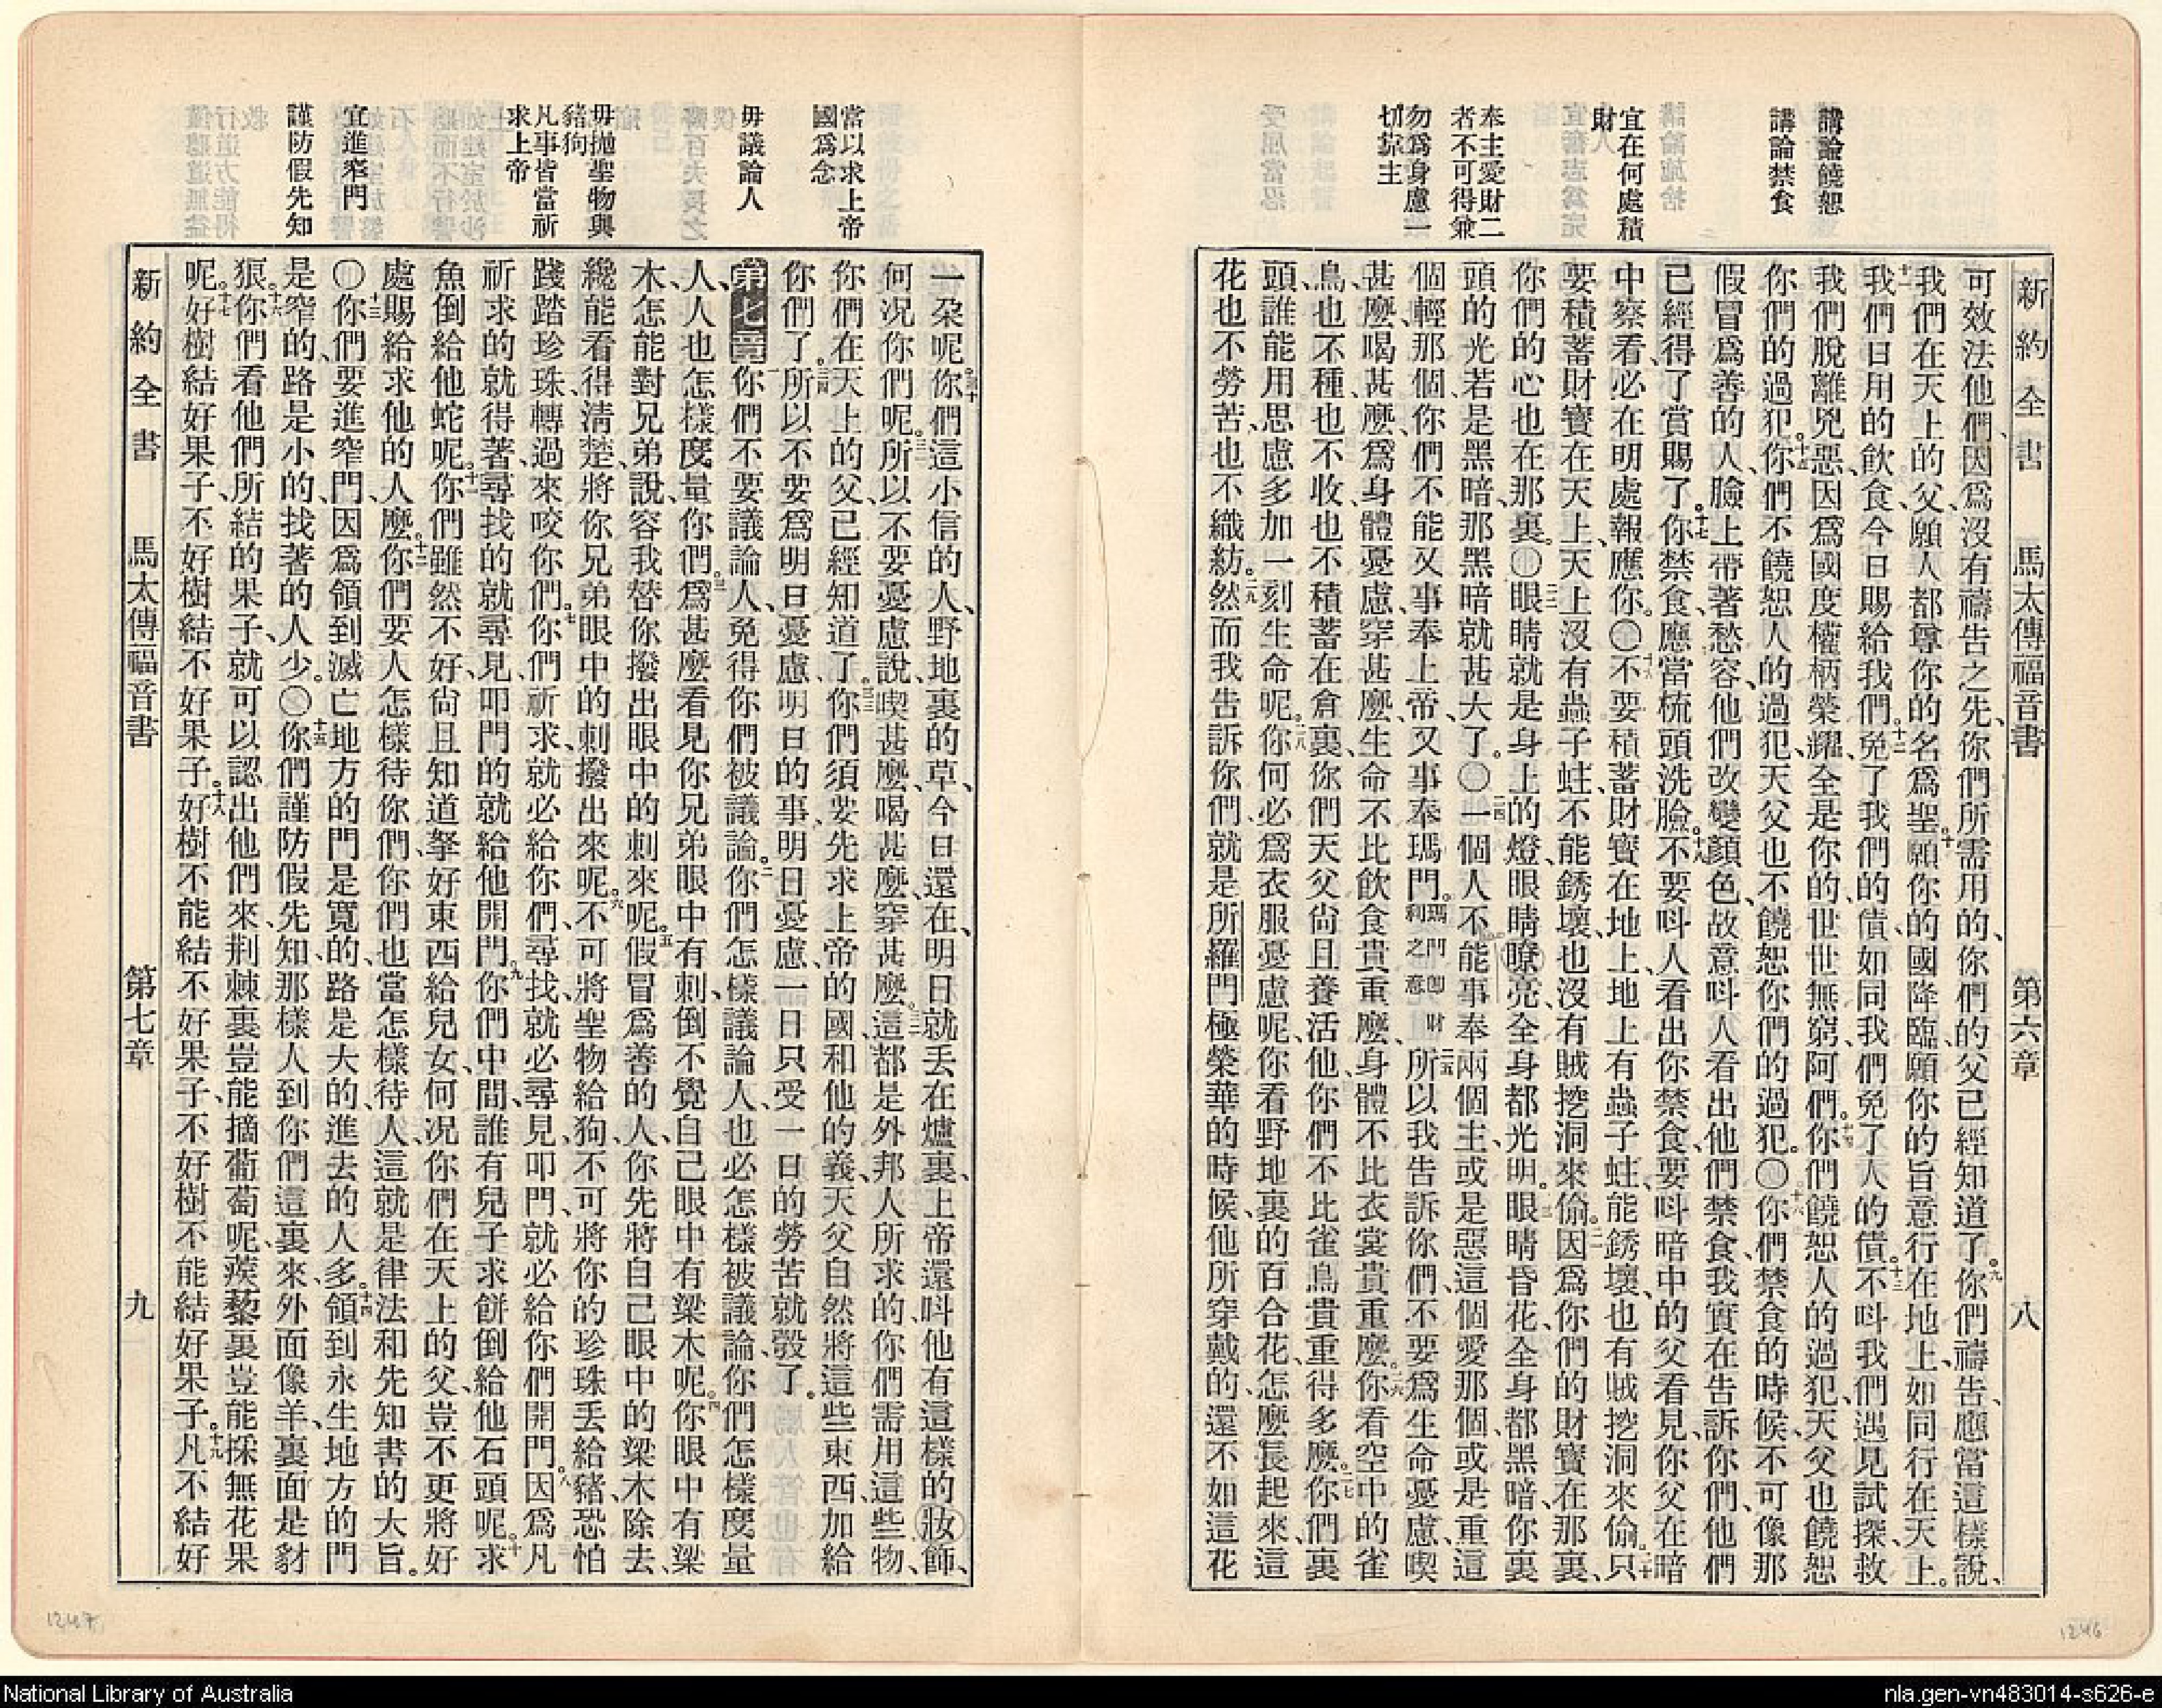 新約全書 馬太傳福音書 第六章 八
講論饒恕
講論禁食
宜在何處積
財
奉主愛財二
者不可得兼
勿爲身慮一
切靠主
可效法他們、因爲沒有禱告之先、你們所需用的、你們的父已經知道了。九你們禱告、應當這樣說、
我們在天上的父、願人都尊你的名爲聖。十願你的國降臨、願你的旨意行在地上、如同行在天上。
十一我們日用的飲食、今日賜給我們。十二免了我們的債、如同我們免了人的債。十三不呌我們遇見試探、救
我們脫離兇惡、因爲國度權柄榮耀、全是你的、世世無窮、阿們。十四你們饒恕人的過犯、天父也饒恕
你們的過犯。十五你們不饒恕人的過犯、天父也不饒恕你們的過犯。〇十六你們禁食的時候、不可像那
假冒爲善的人、臉上帶著愁容、他們改變顏色、故意呌人看出他們禁食、我實在告訴你們、他們
已經得了賞賜了。十七你禁食、應當梳頭洗臉。十八不要呌人看出你禁食、要呌暗中的父看見、你父在暗
中察看、必在明處報應你。〇十九不要積蓄財寶在地上、地上有蟲子蛀、能銹壞、也有賊挖洞來偷。二十只
要積蓄財寶在天上、天上沒有蟲子蛀、不能銹壞、也沒有賊挖洞來偷。二一因爲你們的財寶在那裏、
你們的心也在那裏。〇二二眼睛就是身上的燈、眼睛瞭亮、全身都光明。二三眼睛昏花、全身都黑暗、你裏
頭的光若是黑暗、那黑暗就甚大了。〇二四一個人不能事奉兩個主、或是惡這個愛那個、或是重這
個輕那個、你們不能又事奉上帝、又事奉瑪門。瑪門卽財利之意二五所以我告訴你們、不要爲生命憂慮、喫
甚麼、喝甚麼、爲身體憂慮、穿甚麼、生命不比飲食貴重麼、身體不比衣裳貴重麼。二六你看空中的雀
鳥、也不種、也不收、也不積蓄在倉裏、你們天父尙且養活他、你們不比雀鳥貴重得多麼。二七你們裏
頭、誰能用思慮多加一刻生命呢。二八你何必爲衣服憂慮呢、你看野地裏的百合花、怎麼長起來、這
花也不勞苦、也不織紡。二九然而我告訴你們、就是所羅門極榮華的時候、他所穿戴的、還不如這花
當以求上帝
國爲念
毋議論人
毋抛聖物與
豬狗
凡事皆當祈
求上帝
宜進窄門
謹防假先知
一朶呢。三十你們這小信的人、野地裏的草、今日還在、明日就丟在爐裏、上帝還呌他有這樣的妝飾、
何况你們呢。三一所以不要憂慮說、喫甚麼、喝甚麼、穿甚麼。三二這都是外邦人所求的、你們需用這些物、
你們在天上的父、已經知道了。三三你們須要先求上帝的國、和他的義、天父自然將這些東西、加給
你們了。三四所以不要爲明日憂慮、明日的事、明日憂慮、一日只受一日的勞苦就彀了。
第七章一你們不要議論人、免得你們被議論。二你們怎樣議論人、也必怎樣被議論、你們怎樣度量
人、人也怎樣度量你們。三爲甚麼看見你兄弟眼中有刺、倒不覺自己眼中有梁木呢。四你眼中有梁
木、怎能對兄弟說、容我替你撥出眼中的刺來呢。五假冒爲善的人、你先將自己眼中的梁木除去、
纔能看得淸楚、將你兄弟眼中的刺撥出來呢。六不可將聖物給狗、不可將你的珍珠丟給豬、恐怕
踐踏珍珠、轉過來咬你們。七你們祈求、就必給你們、尋找、就必尋見、叩門、就必給你們開門。八因爲凡
祈求的就得著、尋找的就尋見、叩門的就給他開門。九你們中間、誰有兒子求餅、倒給他石頭呢。十求
魚倒給他蛇呢。十一你們雖然不好、尙且知道拏好東西給兒女、何况你們在天上的父、豈不更將好
處賜給求他的人麼。十二你們要人怎樣待你們、你們也當怎樣待人、這就是律法和先知書的大旨。
〇十三你們要進窄門、因爲領到滅亡地方的門是寬的、路是大的、進去的人多。十四領到永生地方的門
是窄的、路是小的、找著的人少。〇十五你們謹防假先知、那樣人到你們這裏來、外面像羊、裏面是豺
狼。十六你們看他們所結的果子、就可以認出他們來、荆棘裏豈能摘葡萄呢、蒺藜裏豈能採無花果
呢。十七好樹結好果子、不好樹結不好果子。十八好樹不能結不好果子、不好樹不能結好果子。十九凡不結好
新約全書 馬太傳福音書 第七章 九
1247
1246
National Library of Australia
nla.gen-vn483014-s626-e